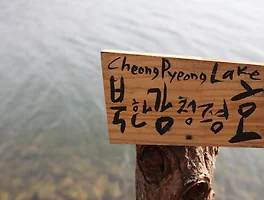 CheongPyeong Lake
북한강청평호